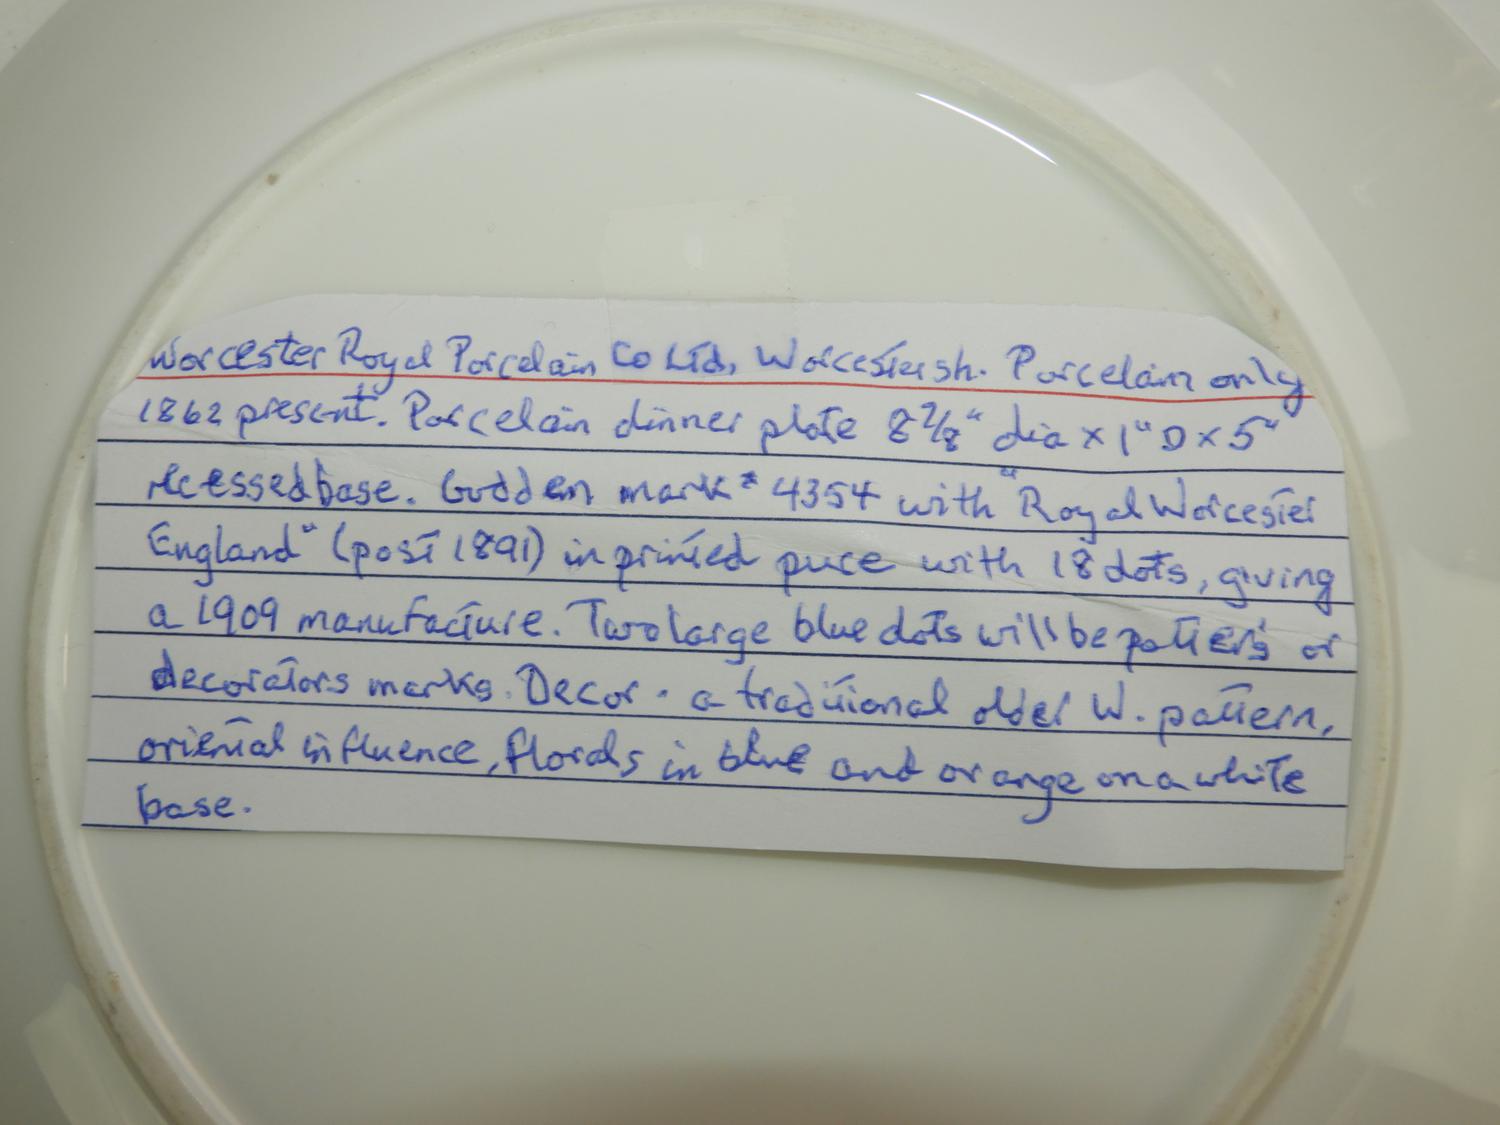 Worcester Royal Porcelain Co Ltd, Worcestersh. Porcelain only
1862 present. Porcelain dinner plate 8 7/8" dia x 1" D x 5"
recessed base. Godden mark # 4354 with "Royal Worcester
England" (post 1891) in printed puce with 18 dots, giving
a 1909 manufacture. Two large blue dots will be potter's or
decorators marks. Decor - a traditional older W. pattern,
oriental influence, florals in blue and orange on a white
base.